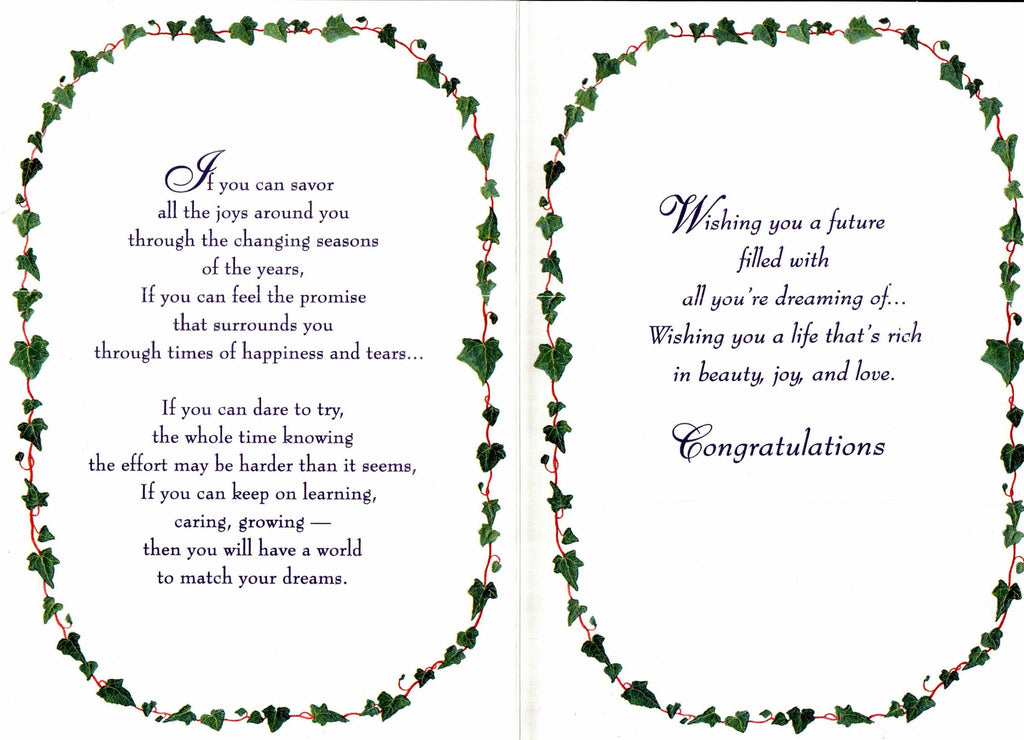 If you can savor
all the joys around you
through the changing seasons
of the years,
If you can feel the promise
that surrounds you
through times of happiness and tears...
If you can dare to try,
the whole time knowing
the effort may be harder than it seems,
If you can keep on learning,
caring, growing —
then you will have a world
to match your dreams.
Wishing you a future
filled with
all you're dreaming of...
Wishing you a life that's rich
in beauty, joy, and love.
Congratulations